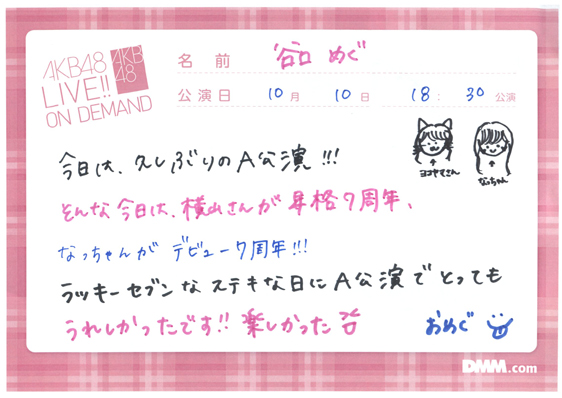 AKB48
LIVE!!
ON DEMAND
AKB
48
名前 谷口 めぐ
公演日 10月 10日 18:30公演
今日は、久しぶりのA公演!!!
ヨコヤマさん
なっちゃん
そんな今日は、横山さんが昇格7周年、
なっちゃんが デビュー7周年!!!
ラッキーセブンな ステキな日に A公演で とっても
うれしかったです!! 楽しかった
おめぐ
DMM.com